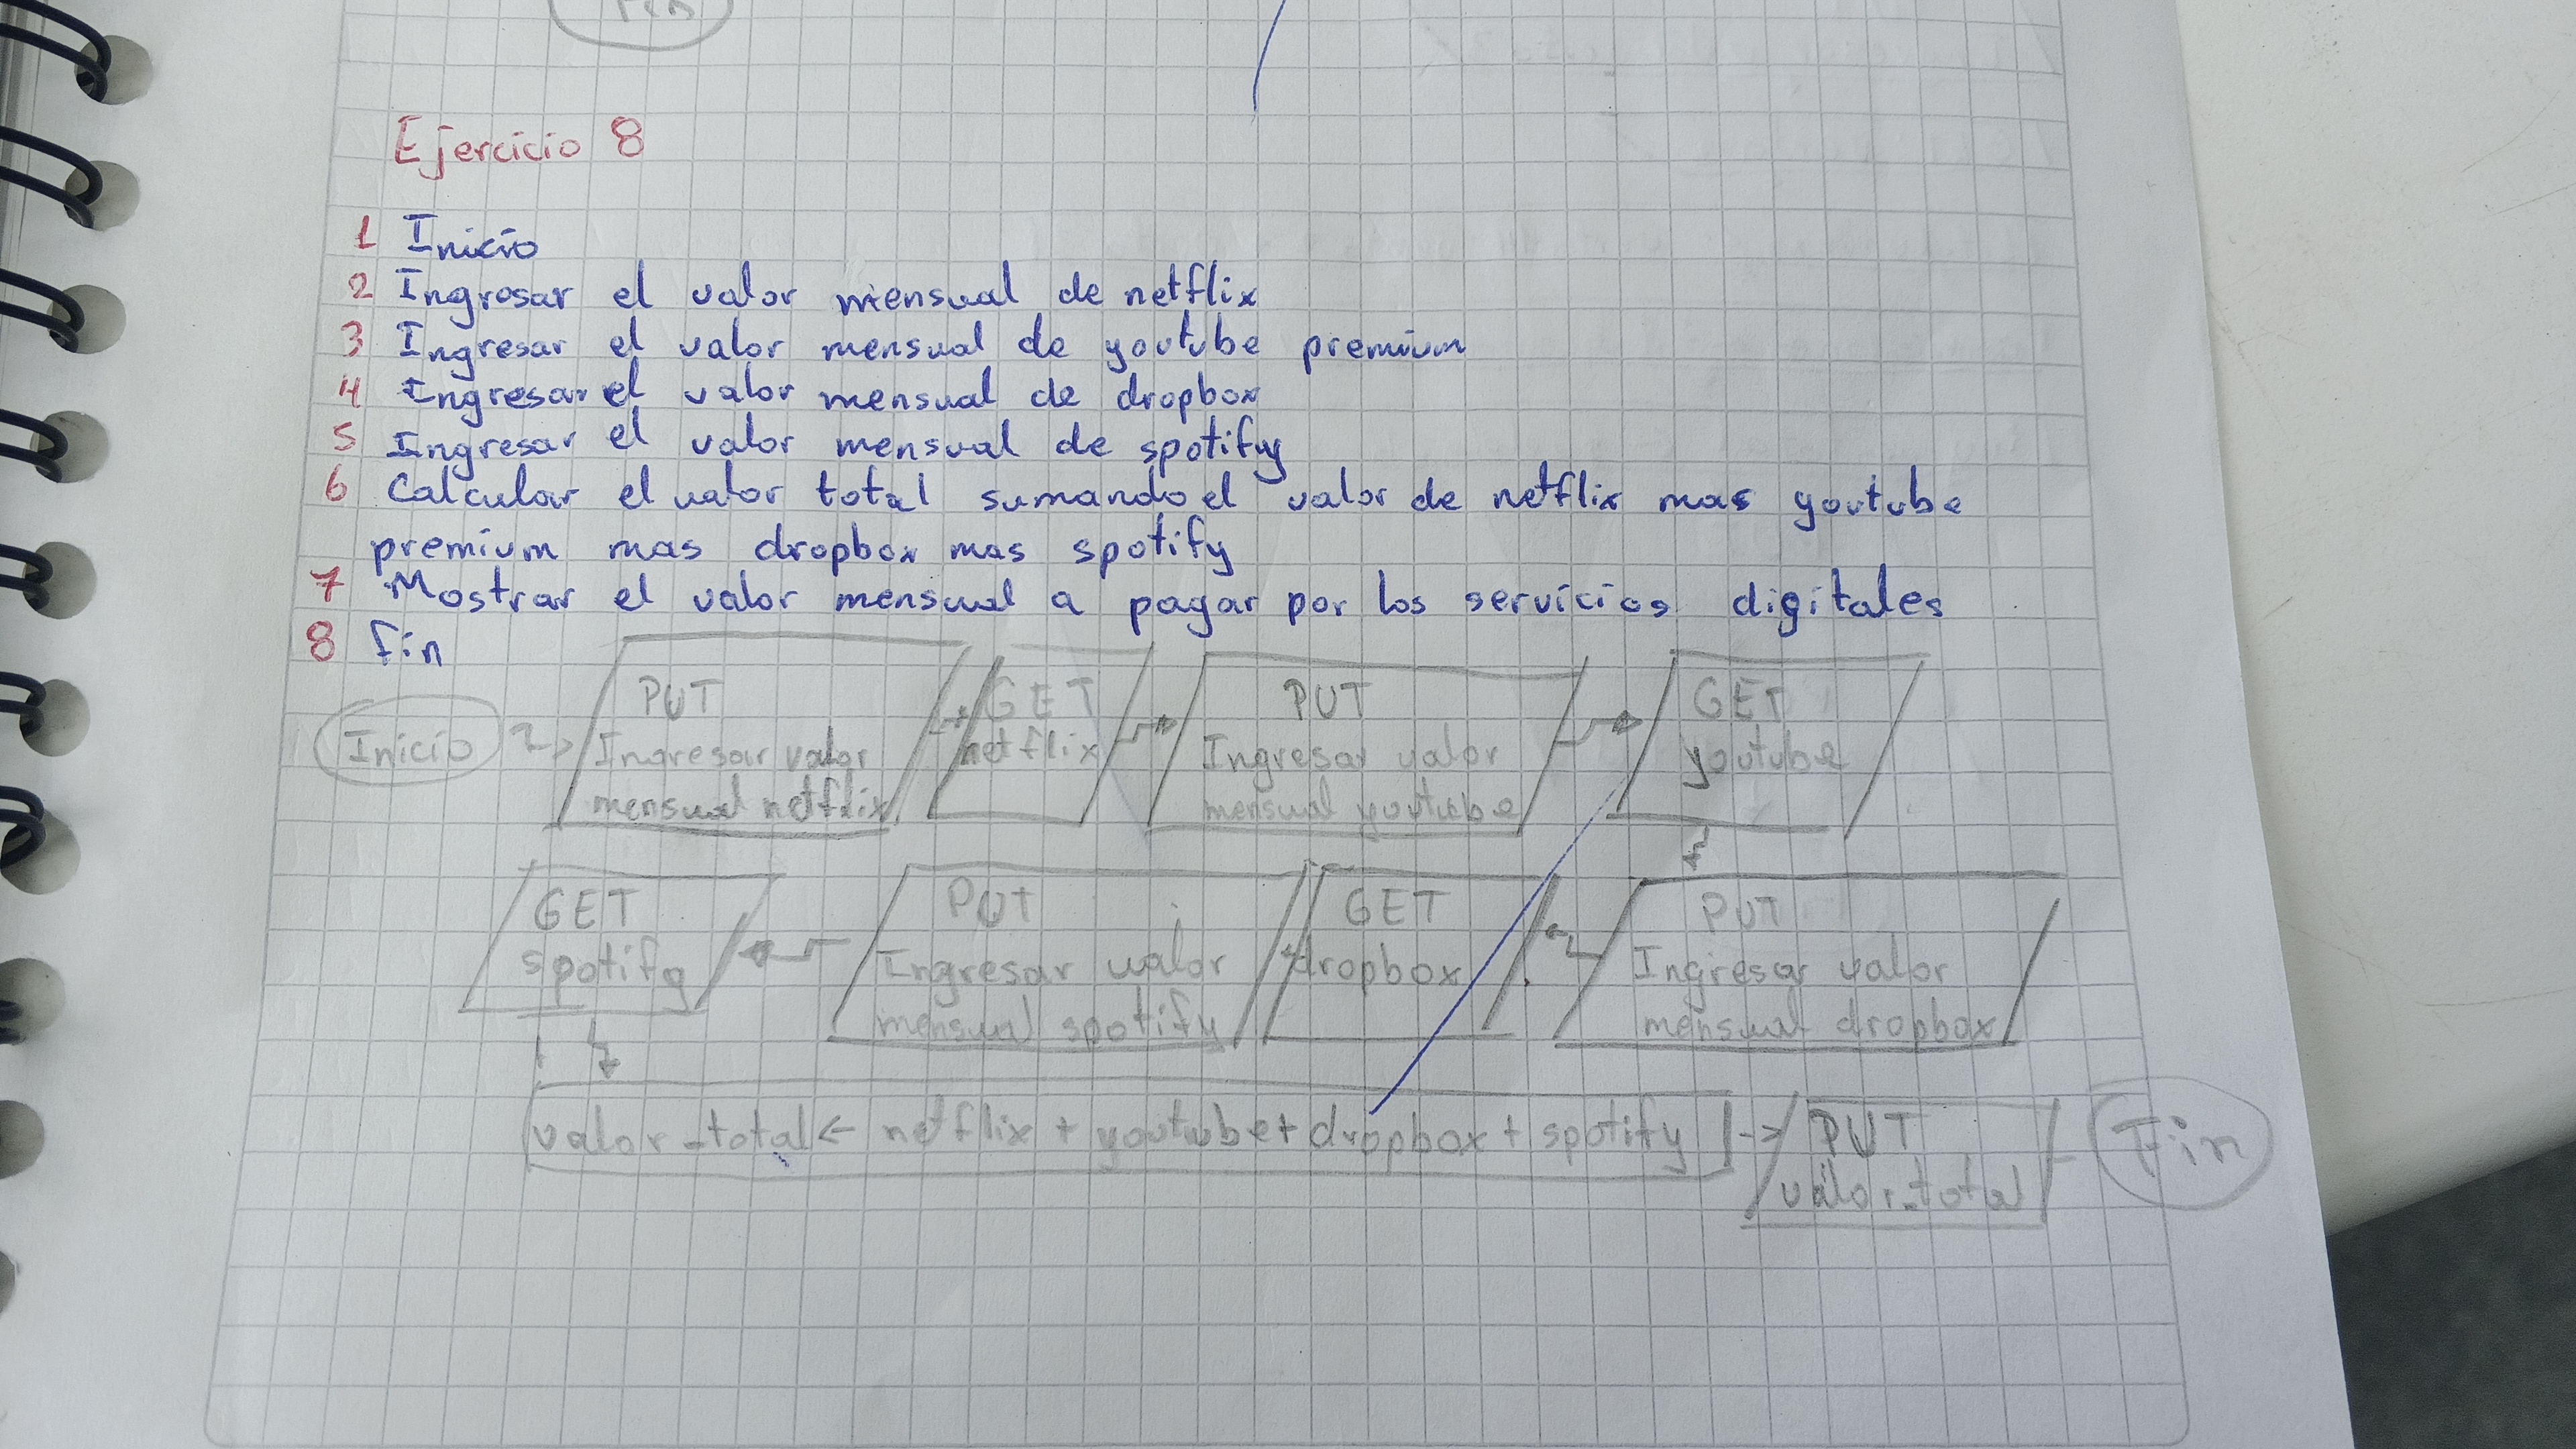 Fin
Ejercicio 8
1 Inicio
2 Ingresar el valor mensual de netflix
3 Ingresar el valor mensual de youtube premium
4 Ingresar el valor mensual de dropbox
5 Ingresar el valor mensual de spotify
6 Calcular el valor total sumando el valor de netflix mas youtube
premium mas dropbox mas spotify
7 Mostrar el valor mensual a pagar por los servicios digitales
8 fin
Inicio
PUT
Ingresar valor
mensual netflix
GET
netflix
PUT
Ingresar valor
mensual youtube
GET
youtube
PUT
Ingresar valor
mensual dropbox
GET
dropbox
PUT
Ingresar valor
mensual spotify
GET
spotify
valor_total ← netflix + youtube + dropbox + spotify
PUT
valor_total
Fin